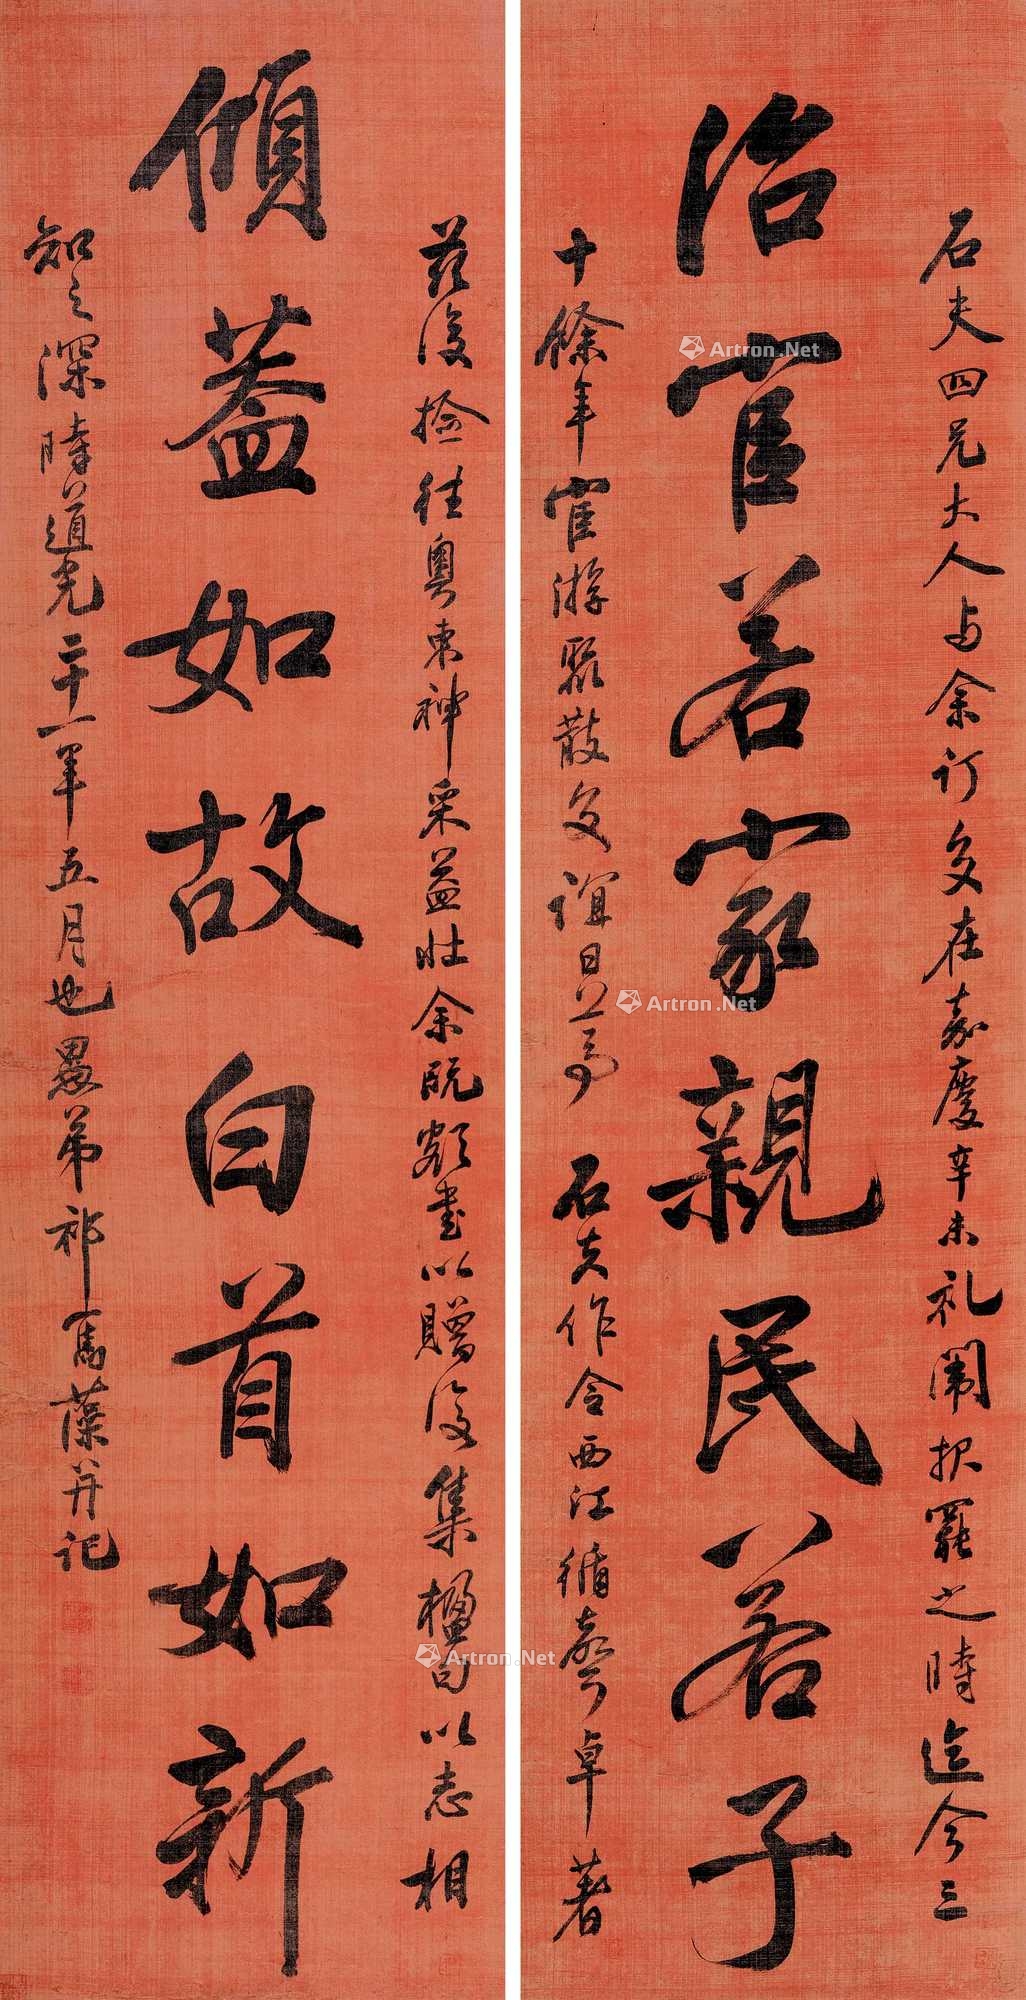 石夫四兄大人与余订交在嘉庆辛未礼闱报罢之时迄今三
治官若家親民若子
十餘年宦游聚散交誼日益篤 石夫作令西江循聲卓著
茲復捡往粤東神采益壮余既爲書以贈復集楹句以志相
傾蓋如故白首如新
知之深時道光二十一年五月也愚弟祁寯藻并记
Artron.Net
Artron.Net
Artron.Net